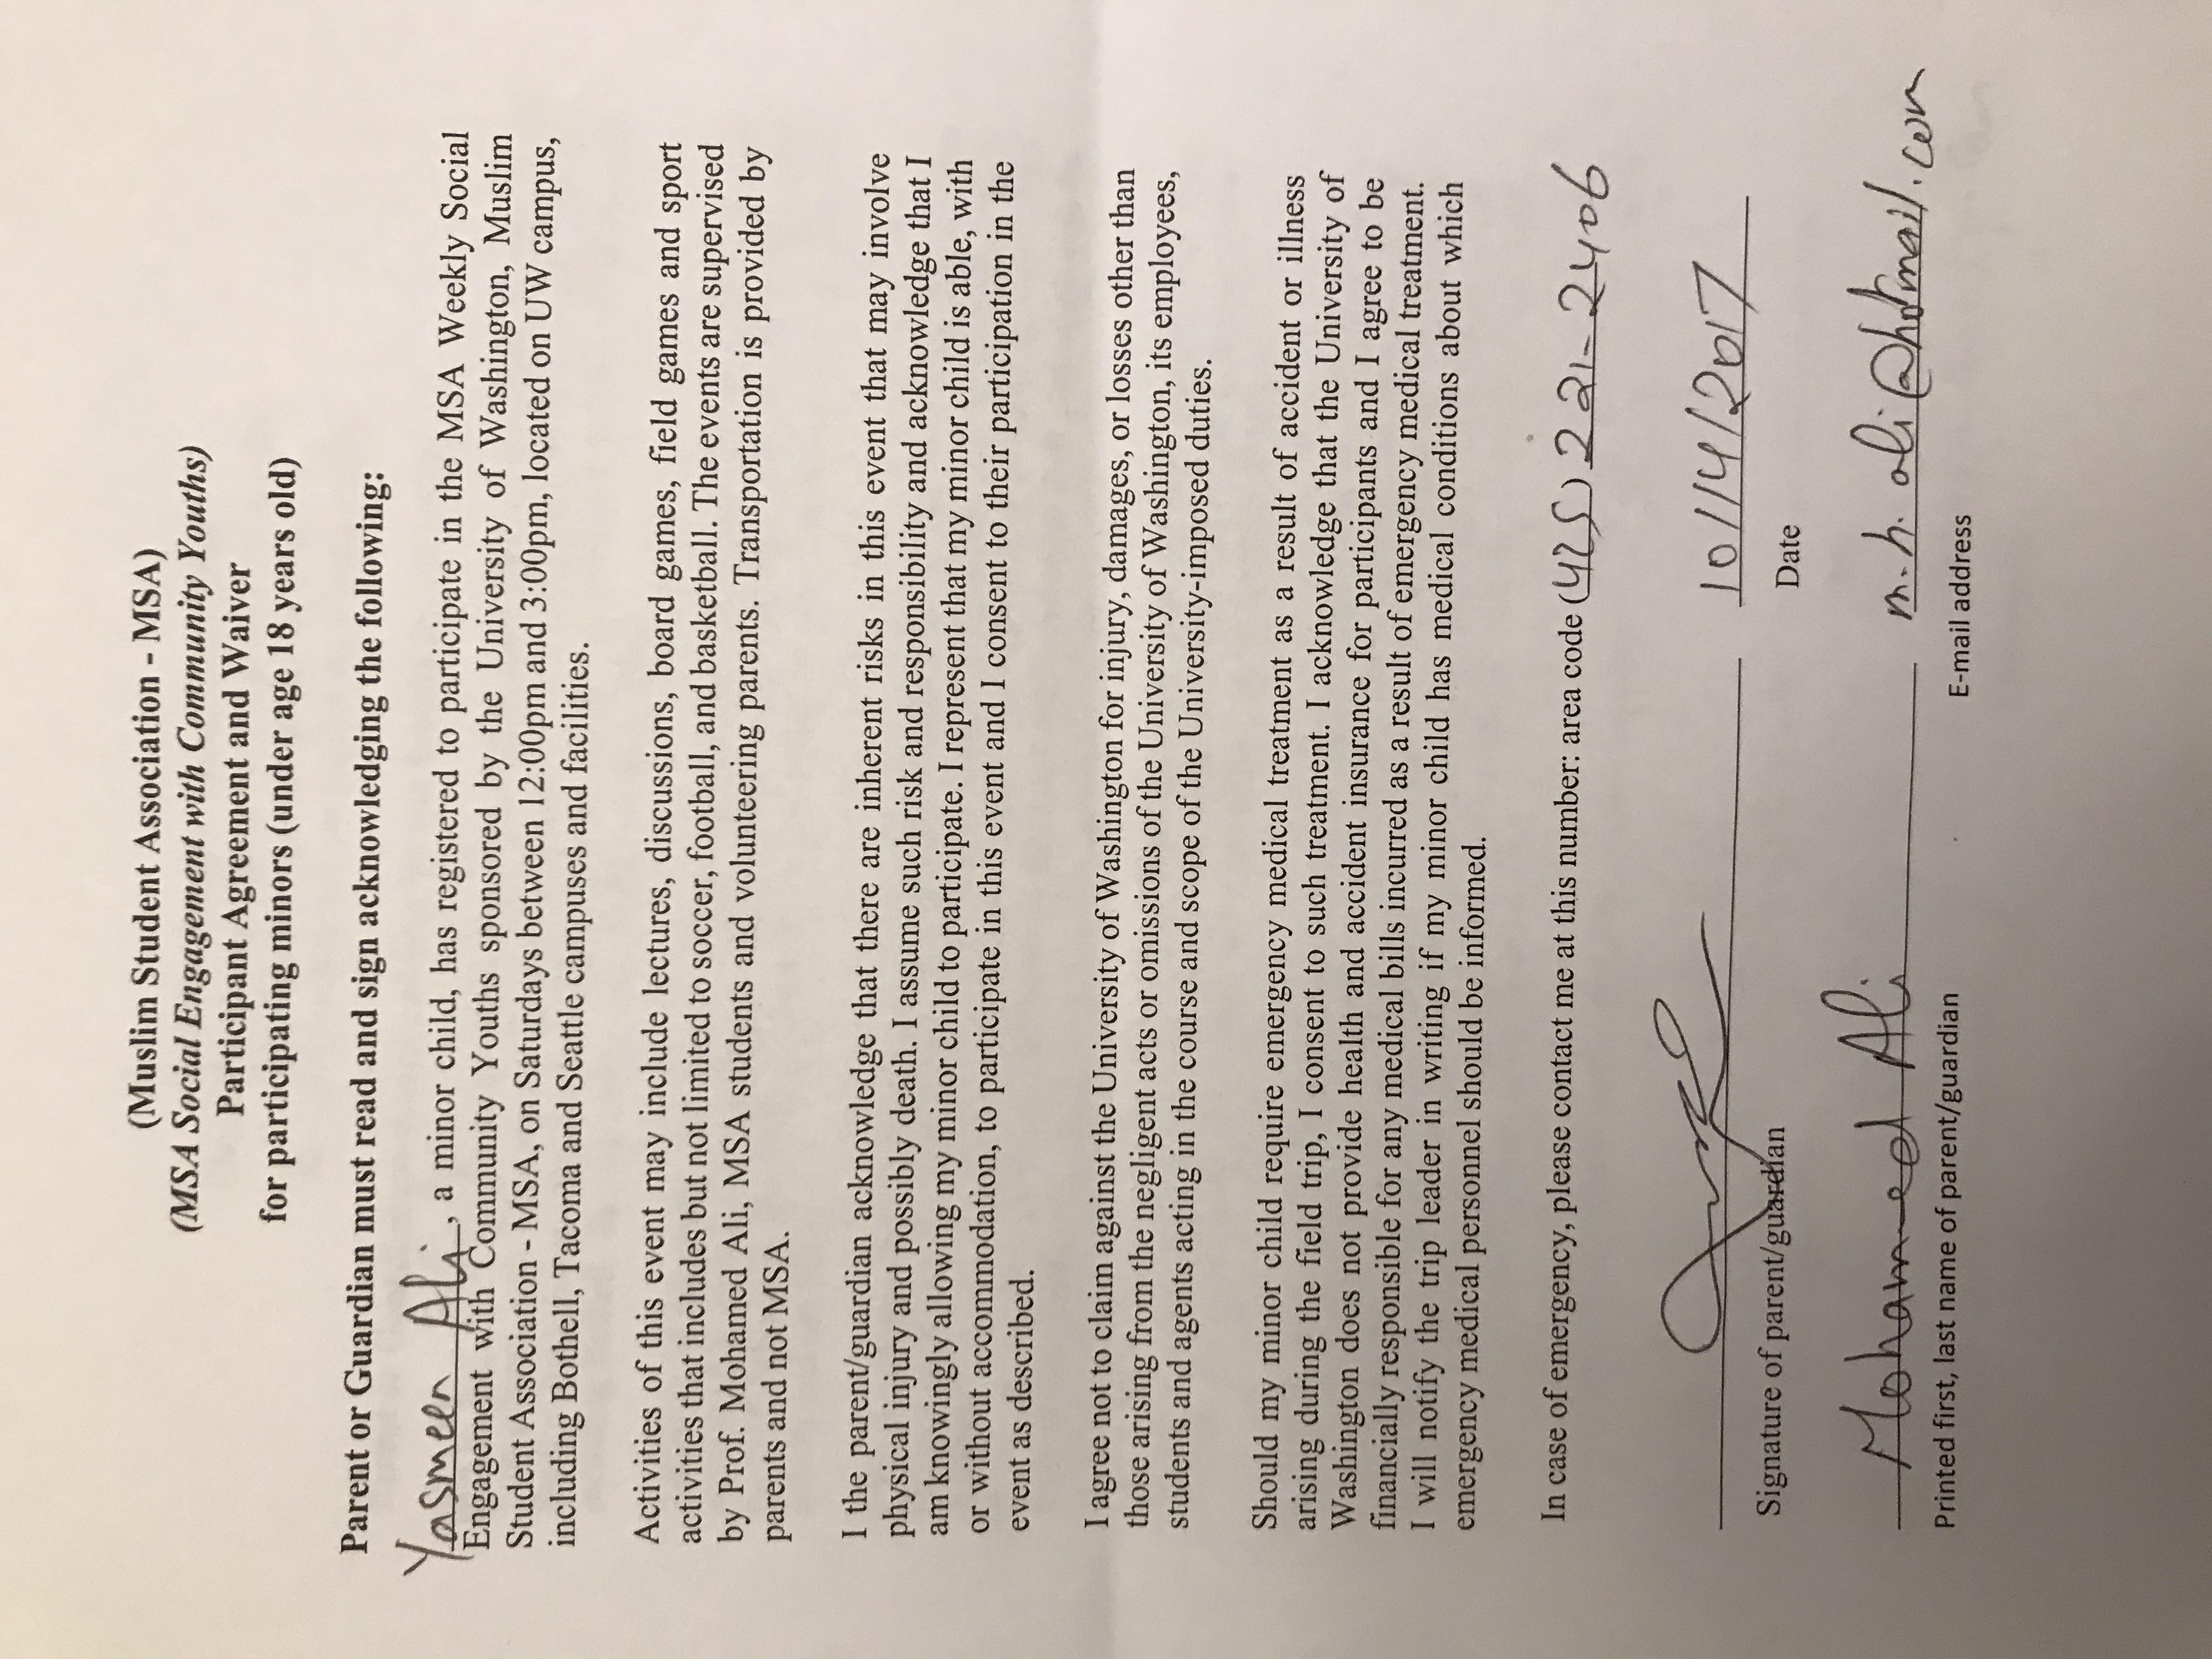 (Muslim Student Association - MSA)
(MSA Social Engagement with Community Youths)
Participant Agreement and Waiver
for participating minors (under age 18 years old)
Parent or Guardian must read and sign acknowledging the following:
Yasmeen Ali, a minor child, has registered to participate in the MSA Weekly Social
Engagement with Community Youths sponsored by the University of Washington, Muslim
Student Association - MSA, on Saturdays between 12:00pm and 3:00pm, located on UW campus,
including Bothell, Tacoma and Seattle campuses and facilities.
Activities of this event may include lectures, discussions, board games, field games and sport
activities that includes but not limited to soccer, football, and basketball. The events are supervised
by Prof. Mohamed Ali, MSA students and volunteering parents. Transportation is provided by
parents and not MSA.
I the parent/guardian acknowledge that there are inherent risks in this event that may involve
physical injury and possibly death. I assume such risk and responsibility and acknowledge that I
am knowingly allowing my minor child to participate. I represent that my minor child is able, with
or without accommodation, to participate in this event and I consent to their participation in the
event as described.
I agree not to claim against the University of Washington for injury, damages, or losses other than
those arising from the negligent acts or omissions of the University of Washington, its employees,
students and agents acting in the course and scope of the University-imposed duties.
Should my minor child require emergency medical treatment as a result of accident or illness
arising during the field trip, I consent to such treatment. I acknowledge that the University of
Washington does not provide health and accident insurance for participants and I agree to be
financially responsible for any medical bills incurred as a result of emergency medical treatment.
I will notify the trip leader in writing if my minor child has medical conditions about which
emergency medical personnel should be informed.
In case of emergency, please contact me at this number: area code (425) 221-2406
10/14/2017
Signature of parent/guardian
Date
Mohamed Ali
m.h.ali@hotmail.com
Printed first, last name of parent/guardian
E-mail address